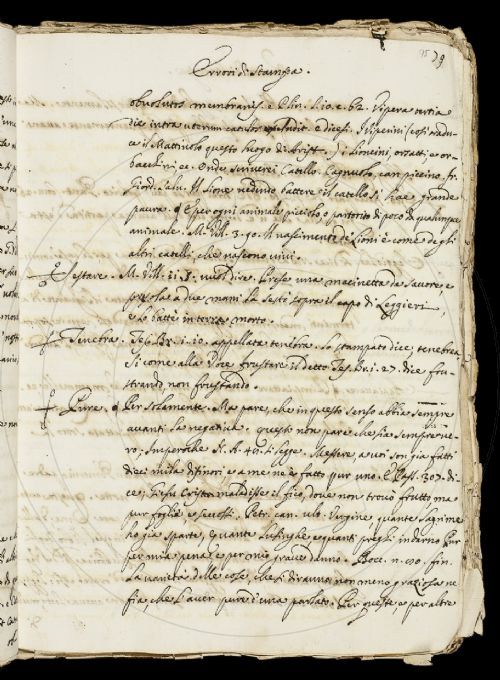 79
Errori di Stampa.
obvolutos membranis. e Plin. l. 10. c. 62. Vipera tertia
die intra uterum catulos e dicesi. I Viperini (così tradu
ce il Mattiuolo questo luogo di Arist.) i Lioncini, orsatti e or-
bacchini ec. Onde scriverei Catello. Cagnuolo, can piccino. fr.
Giord. Salv. Il Lione vedendo battere il catello si hae grande
paura. § E per ogni animale picciolo o partorito di poco di qualunque
animale. M. Vill. 3. 90. Il nascimento de' Lioni è come degli
altri catelli, che nascono vivi.
Sestare. M. Vill. 11. 8. vuol dire. Prese una macinetta da Savore, e
presola a due mani la sestò sopra il capo di Leggieri,
e lo battè in terra morto.
Tenebra. Tes. Br. 1. 10. appellata tenebra. Lo stampato dice, tenebrea
Si come alla Voce frustare il detto Tes. Br. 1. 2. dice fru-
strando, non frustando.
Pure. § Per Solamente. Ma pare, che in questo senso abbia sempre
avanti la negativa. questo non pare che sia sempre ve-
ro. Imperochè N. A. 40. si legge. Messere, a voi son già fatti
dieci mila ditinori e a me ne è fatto pur uno. E Pass. 307. di-
ce, Giesu Cristo maladisse il fico, dove non trovò frutto ma
pur foglie e secchi. Petr. can. ulo. Vergine quante lagrime
ho già sparte, e quante lusinghe e quanti preghi indarno Pur
per mia pena e per mio grave danno. Bocc. n. 50. fin.
La varietà delle cose, che si diranno non meno graziosa ne
fia, che l'aver pure d'una parlato. Per queste, e per altre